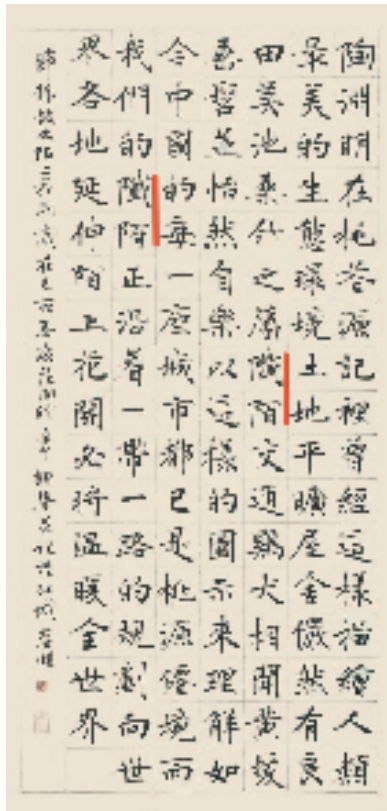 陶淵明在桃花源記裡曾經這樣描繪人類
最美的生態環境土地平曠屋舍儼然有良
田美池桑竹之屬陌交通鷄犬相聞黃髮
垂髫並怡然自樂以這樣的圖示來理解如
今中國的每一座城市都已是桃源僊境而
我們的陌正沿着一帶一路的規劃向世
界各地延伸陌上花開必將溫暖全世界